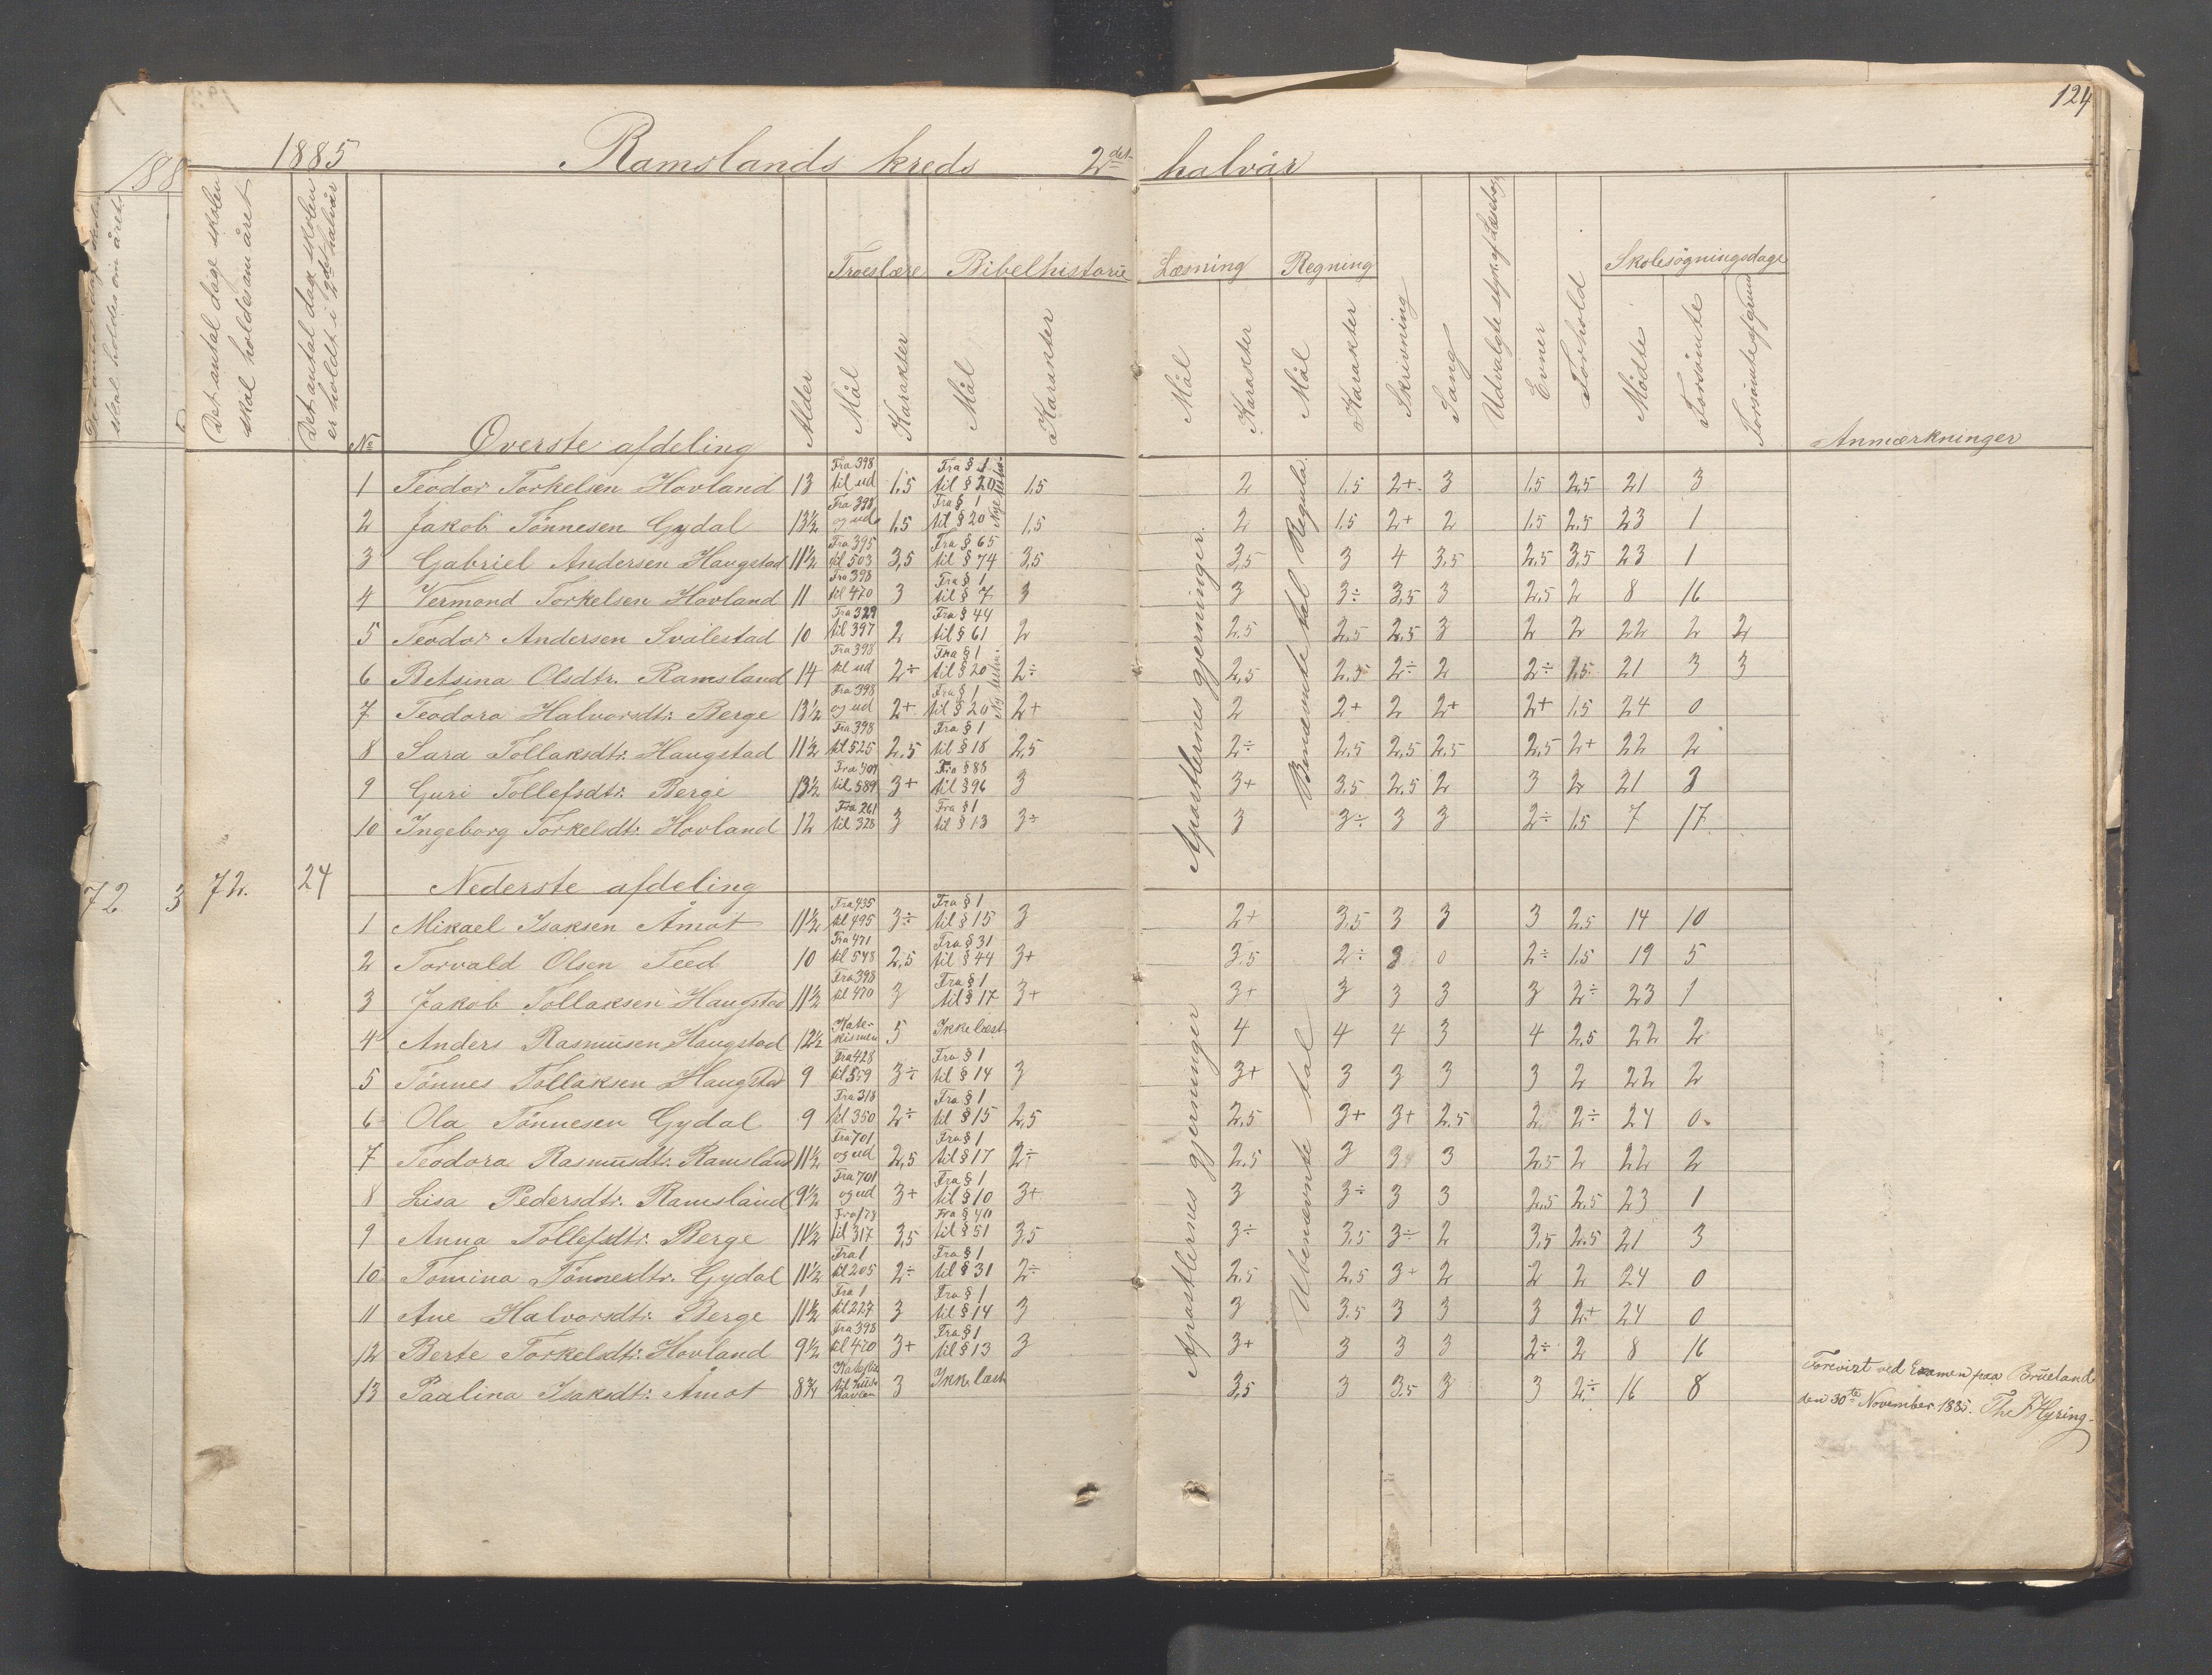 124
1885 Ramslands kreds 2det halvår
Det antal dage skolen skal holdes om året
Det antal dage skolen er holdt i 2det halvår
No
Overste afdeling
Alder
Troeslære
Mål
Karakter
Bibelhistorie
Mål
Karakter
Læsning
Mål
Karakter
Regning
Mål
Karakter
Skrivning
Sang
Udvalgte styk. af Læsebog
Evner
Forhold
Skolesøgningsdage
Mødte
Forsømte
Forsømte af grund
Anmærkninger
Apostlernes gjerninger.
Benævnte tal Regula
1 Teodor Torkelsen Hovland 13 Fra 398 til ud 1,5 Fra § 1 til § 20 1,5 2 1.5 2+ 3 1.5 2,5 21 3
2 Jakob Tønnesen Gydal 13½ Fra 398 og ud 1,5 Fra § 1 til § 20 1,5 2 1.5 2+ 2 1.5 2.5 23 1
3 Gabriel Andersen Haugstad 11½ Fra 395 til 503 3,5 Fra § 65 til § 74 3,5 3,5 3 4 3.5 2.5 3,5 23 1
4 Vermond Torkelsen Hovland 11 Fra 398 til 470 3 Fra § 1 til § 7 3 3 3÷ 3,5 3 2.5 2 8 16
5 Teodor Andersen Svalestad 10 Fra 329 til 397 2 Fra § 44 til § 61 2 2.5 2.5 2,5 3 2 2 22 2 2
6 Betsina Olsdtr. Ramsland 14 Fra 398 til ud 2÷ Fra § 1 til § 20 2÷ 2,5 2.5 2÷ 2 2÷ 1.5 21 3 3
7 Teodora Halvorsdtr. Berge 13½ Fra 398 og ud 2+ Fra § 1 til § 20 2+ 2 2+ 2 2+ 2+ 1.5 24 0
8 Sara Tollaksdtr. Haugstad 11½ Fra 398 til 525 2.5 Fra § 1 til § 18 2,5 2÷ 2,5 2,5 2,5 2.5 2+ 22 2
9 Guri Tollefsdtr. Berge 13½ Fra 401 til 589 3+ Fra § 88 til § 96 3 3+ 3.5 2.5 2 3 2 21 3
10 Ingeborg Torkelsdtr. Hovland 12 Fra 261 til 328 3 Fra § 1 til § 13 3÷ 3 3÷ 3 3 2÷ 1.5 7 17
72. 24 Nederste afdeling
72 3
Apostlernes gjerninger
Ubenævnte tal
1 Mikael Isaksen Åmot 11½ Fra 435 til 495 3÷ Fra § 1 til § 15 3 2+ 3,5 3 3 3 2.5 14 10
2 Torvald Olsen Teed 10 Fra 471 til 548 2,5 Fra § 31 til § 44 3+ 3.5 2÷ 3 0 2÷ 1.5 19 5
3 Jakob Tollaksen Haugstad 11½ Fra 398 til 470 3 Fra § 1 til § 17 3+ 3+ 3 3 3 3 2÷ 23 1
4 Anders Rasmusen Haugstad 12½ Katekismen 5 Ikke læst 4 4 4 3 4 2.5 22 2
5 Tønnes Tollaksen Haugstad 9 Fra 428 til 559 3÷ Fra § 1 til § 14 3 3+ 3 3 3 3 2 22 2
6 Ola Tønnesen Gydal 9 Fra 318 til 350 2÷ Fra § 1 til § 15 2,5 2,5 3+ 3+ 2.5 2 2÷ 24 0
7 Teodora Rasmusdtr. Ramsland 11½ Fra 701 og ud 2,5 Fra § 1 til § 17 2÷ 2.5 3 3 3 2.5 2 22 2
8 Lisa Pedersdtr. Ramsland 9½ Fra 701 og ud 3+ Fra § 1 til § 10 3+ 3 3÷ 3 3 2,5 2.5 23 1
9 Anna Tollefsdtr. Berge 11½ Fra 178 til 317 3,5 Fra § 40 til § 51 3,5 3÷ 3.5 3÷ 2 3,5 2.5 21 3
10 Tomina Tønnesdtr. Gydal 11½ Fra 1 til 205 2÷ Fra § 1 til § 31 2÷ 2.5 2,5 3+ 2 2 2 24 0
11 Ane Halvorsdtr. Berge 11½ Fra 1 til 227 3 Fra § 1 til § 14 3 3 3.5 3 3 3 2+ 24 0
12 Berte Torkelsdtr. Hovland 9½ Fra 398 til 470 3+ Fra § 1 til § 13 3 3+ 3 3 3 2÷ 2 8 16
13 Paalina Isaksdtr. Åmot 8¾ til hustavlen 3 Ikke læst 3,5 3 3.5 3 3 2÷ 16 8
Forevist ved Examen paa Brueland
den 30te November 1885. Th. F. Hyring